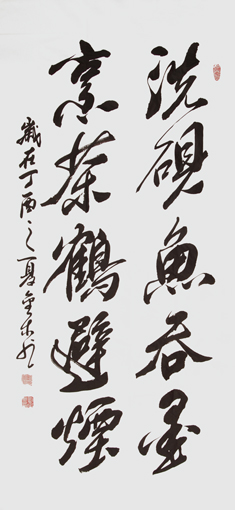 洗硯魚吞墨
烹茶鶴避煙
歲在丁酉之夏金木